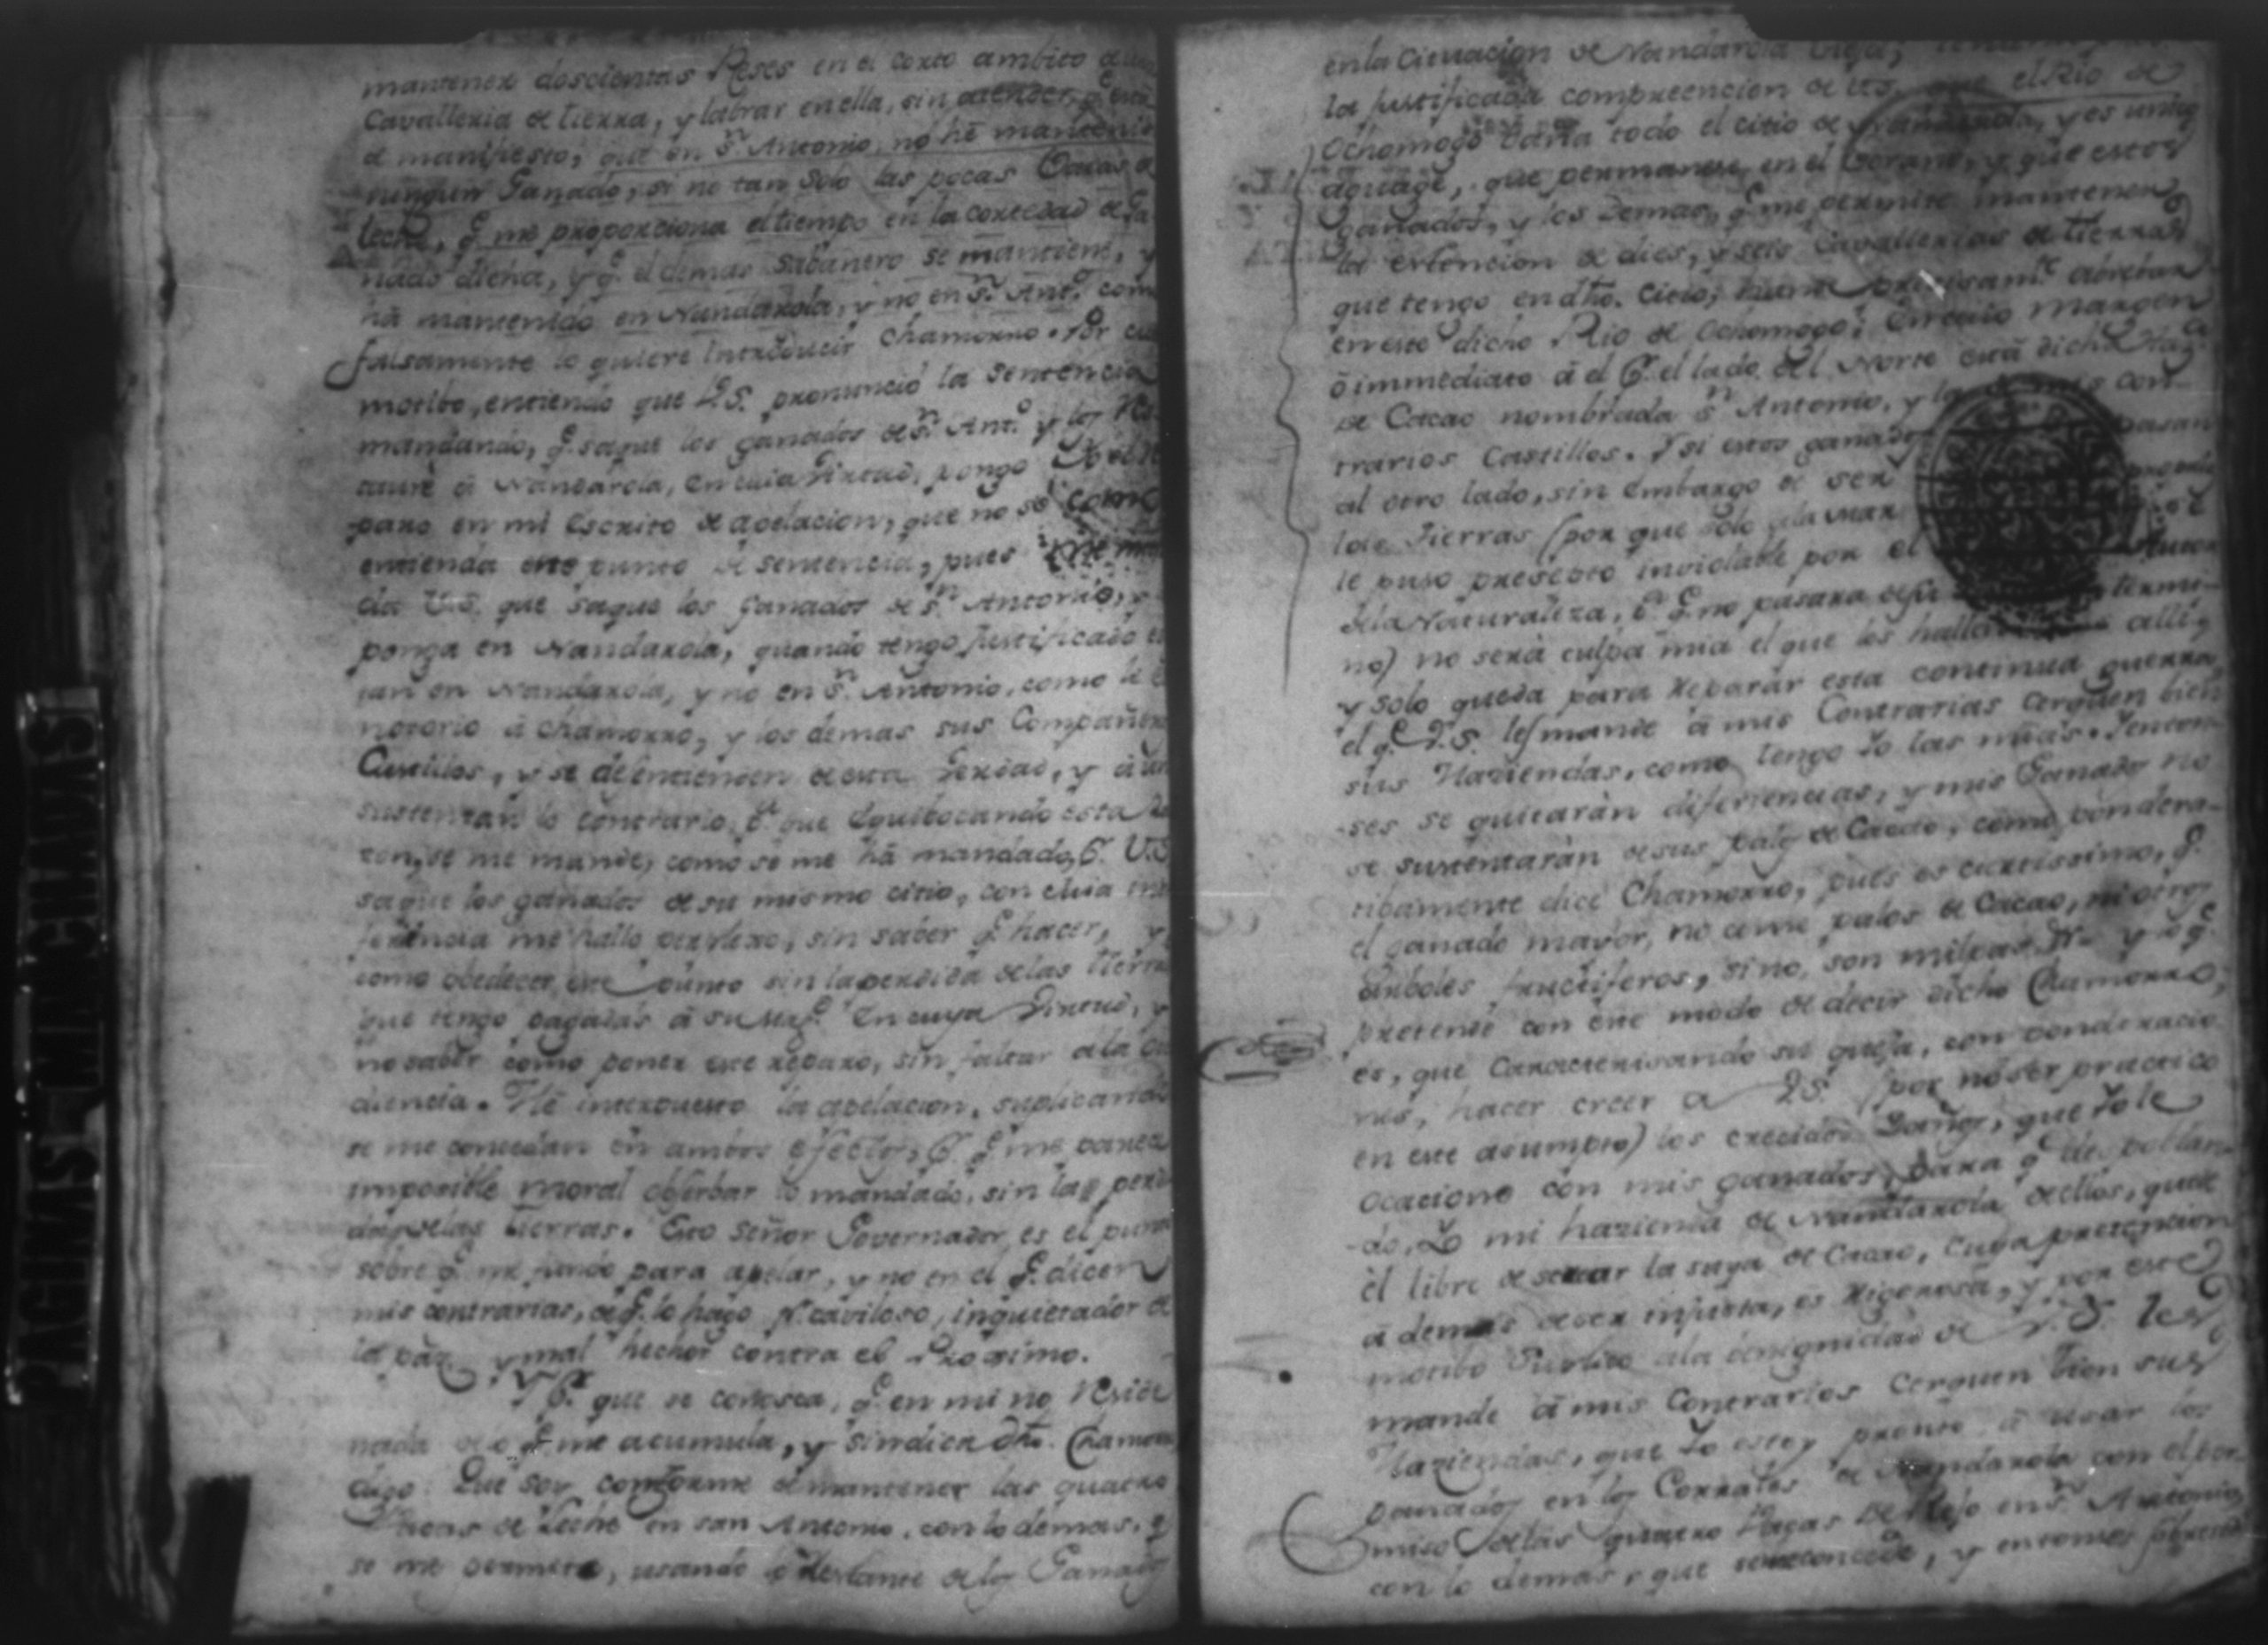 mantener doscientas Reses en el corto ambito de una
Cavalleria de tierra, y labrar en ella, sin atender, q.e está
de manifiesto, que en S.n Antonio, no hé mantenido
ningun Ganado, si no tan solo las pocas Vacas de
leche, q.e me proporciona el tiempo en la cortedad de Ga-
nado dicha, y q.e el demas Sabanero se mantiene, y
há mantenido en Nandarola, y no en S.n Ant.o como
falsamente lo quiere introducir Chamorro. Por cuio
motibo, entiendo que V.S. pronunció la sentencia
mandando, q.e saque los ganados de S.n Ant.o y los
â Nandarola, en cuia Virtud, pongo
paro en mi Escrito de apelacion, que no se como
entienda este punto de sentencia, pues me man
da V.S. que saque los ganados de S.n Antonio, y
ponga en Nandarola, quando tengo justificado es
tan en Nandarola, y no en S.n Antonio, como le es
notorio á Chamorro, y los demas sus Compañeros
Castillos, y se desentienden de esta Verdad, y aun
sustentan lo contrario, p.a que equibocando esta Ra
zon, se me mande, como se me há mandado, p.r V.S.
saque los ganados de su mismo citio, con cuia in
ferencia me hallo perplexo, sin saber q.e hacer, y
como obedecer este punto sin la perdida de las tierras
que tengo pagadas â su Mag.d En cuya Virtud, y
no saber como poner este reparo, sin faltar â la ove
diencia. Hé interpuesto la apelacion, suplicando
se me concedan en ambos efectos, p.r q.e me parece
imposible moral observar lo mandado, sin la perdi
da de las tierras. Este Señor Governador, es el punto
sobre q.e me fundo para apelar, y no en el q.e dicen
mis contrarias, de q.e lo hago p.r caviloso, inquietador de
la páz, y mal hechor contra el Proximo.
Y p.a que se conosca, q.e en mi no Reside
nada de lo q.e me acumula, y sindica dho. Chamorro
digo: Que soy conforme de mantener las quatro
Vacas de Leche en san Antonio, con lo demas, q.e
se me permite, usando lo restante de los Ganados
en la Cituacion de Nandarola Vieja,
la justificada compreencion de V.S. que el Rio de
Ochomogo baña todo el citio de Nandarola, y es unico
aguage, que permanece en el Verano, y que estos
ganados, y los demas, q.e me permite mantener
la extencion de dies, y seis Cavallerias de tierras
que tengo en dho. Citio, han precisam.te abrebar
en este dicho Rio de Ochomogo; en cuio margen
ô inmediato á el p.r el lado del Norte está dicha Haz.da
de Cacao nombrada S.n Antonio, y las de mis con-
trarios Castillos. Y si estos ganados pasan
al otro lado, sin embargo de ser
las Tierras (por que solo â la mar
le puso precepto inviolable por el Autor
de la Naturaleza, p.a q.e no pasara de su termi-
no) no será culpa mia el que los hallen alli,
y solo queda para reparar esta continua guerra,
el q.e V.S. les mande â mis Contrarias cerquen bien
sus Haziendas, como tengo Yo las mias. Y enton-
ses se quitarán diferiencias, y mis Ganado no
se sustentarán de sus palos de Cacao, como pondera-
tibamente dice Chamorro, pues es ciertissimo, q.e
el ganado mayor, no come palos de Cacao, ni otros
árboles fructiferos, si no, son milpas y lo q.e
pretende con este modo de decir dicho Chamorro,
es, que Caracterisando su queja, con ponderacio
nes, hacer creer a V.S. (por no ser practico
en este asumpto) los crecidos Daños, que Yo le
ocaciono con mis ganados, para q.e despoblan-
do, Yo mi hazienda de Nandarola de ellos, quede
êl libre de sercar la suya de Cacao, cuya pretencion
â demas de ser injusta, es Rigorosa, y por este
motibo suplico â la benignidad de V.S. les
mande â mis Contrarios Cerquen bien sus
Haziendas, que Yo estoy pronto â usar los
ganados en los Corrales de Nandarola con el per-
miso de las quatro Vacas de en S.n Antonio
con lo demas, que se me concede, y entonces